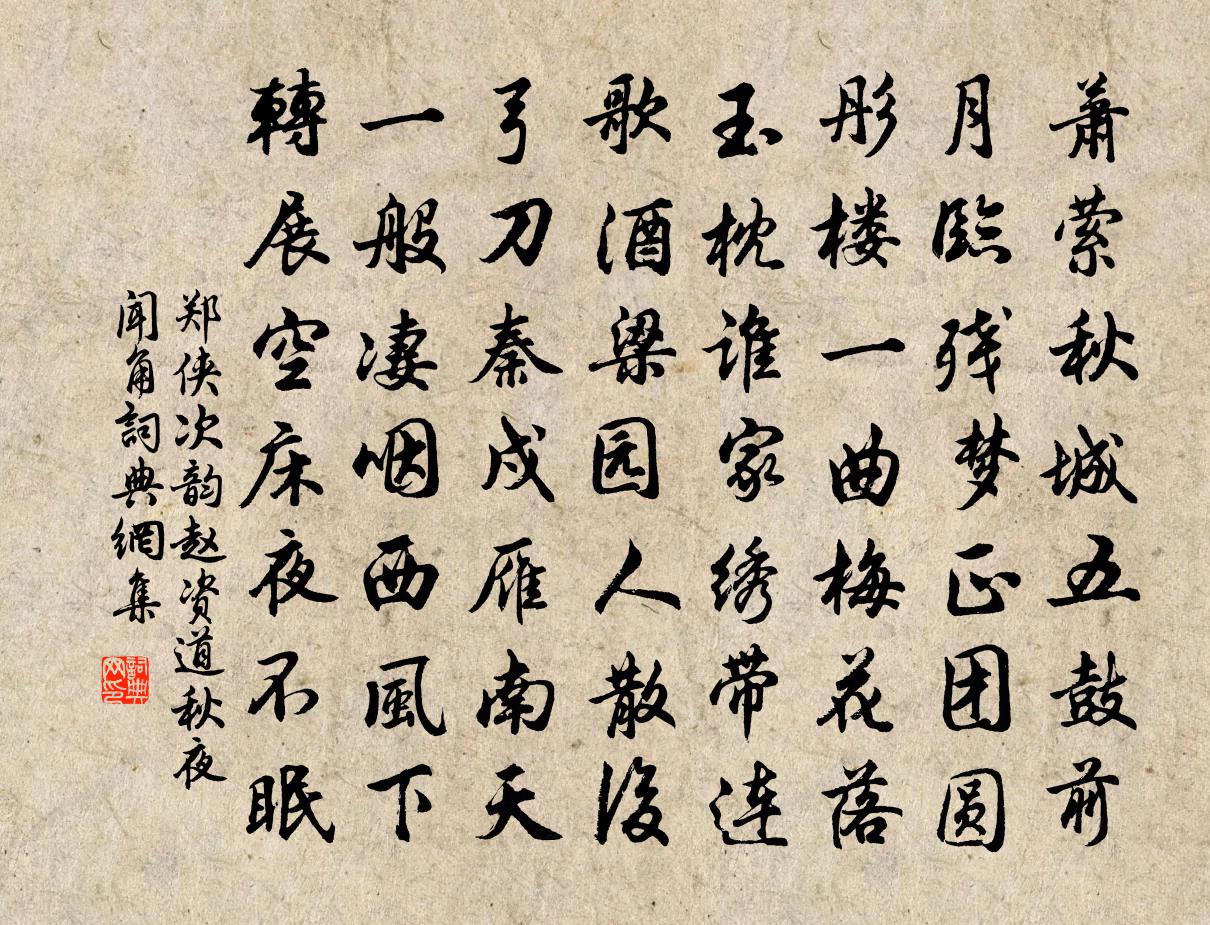 萧萦秋城五鼓前
月臨残梦正团圆
彤楼一曲梅花落
玉枕谁家绣带连
歌酒梁园人散後
弓刀秦戍雁南天
一般凄咽西風下
轉展空床夜不眠
郑侠次韵赵资道秋夜
闻角詞典網集
詞典
网印